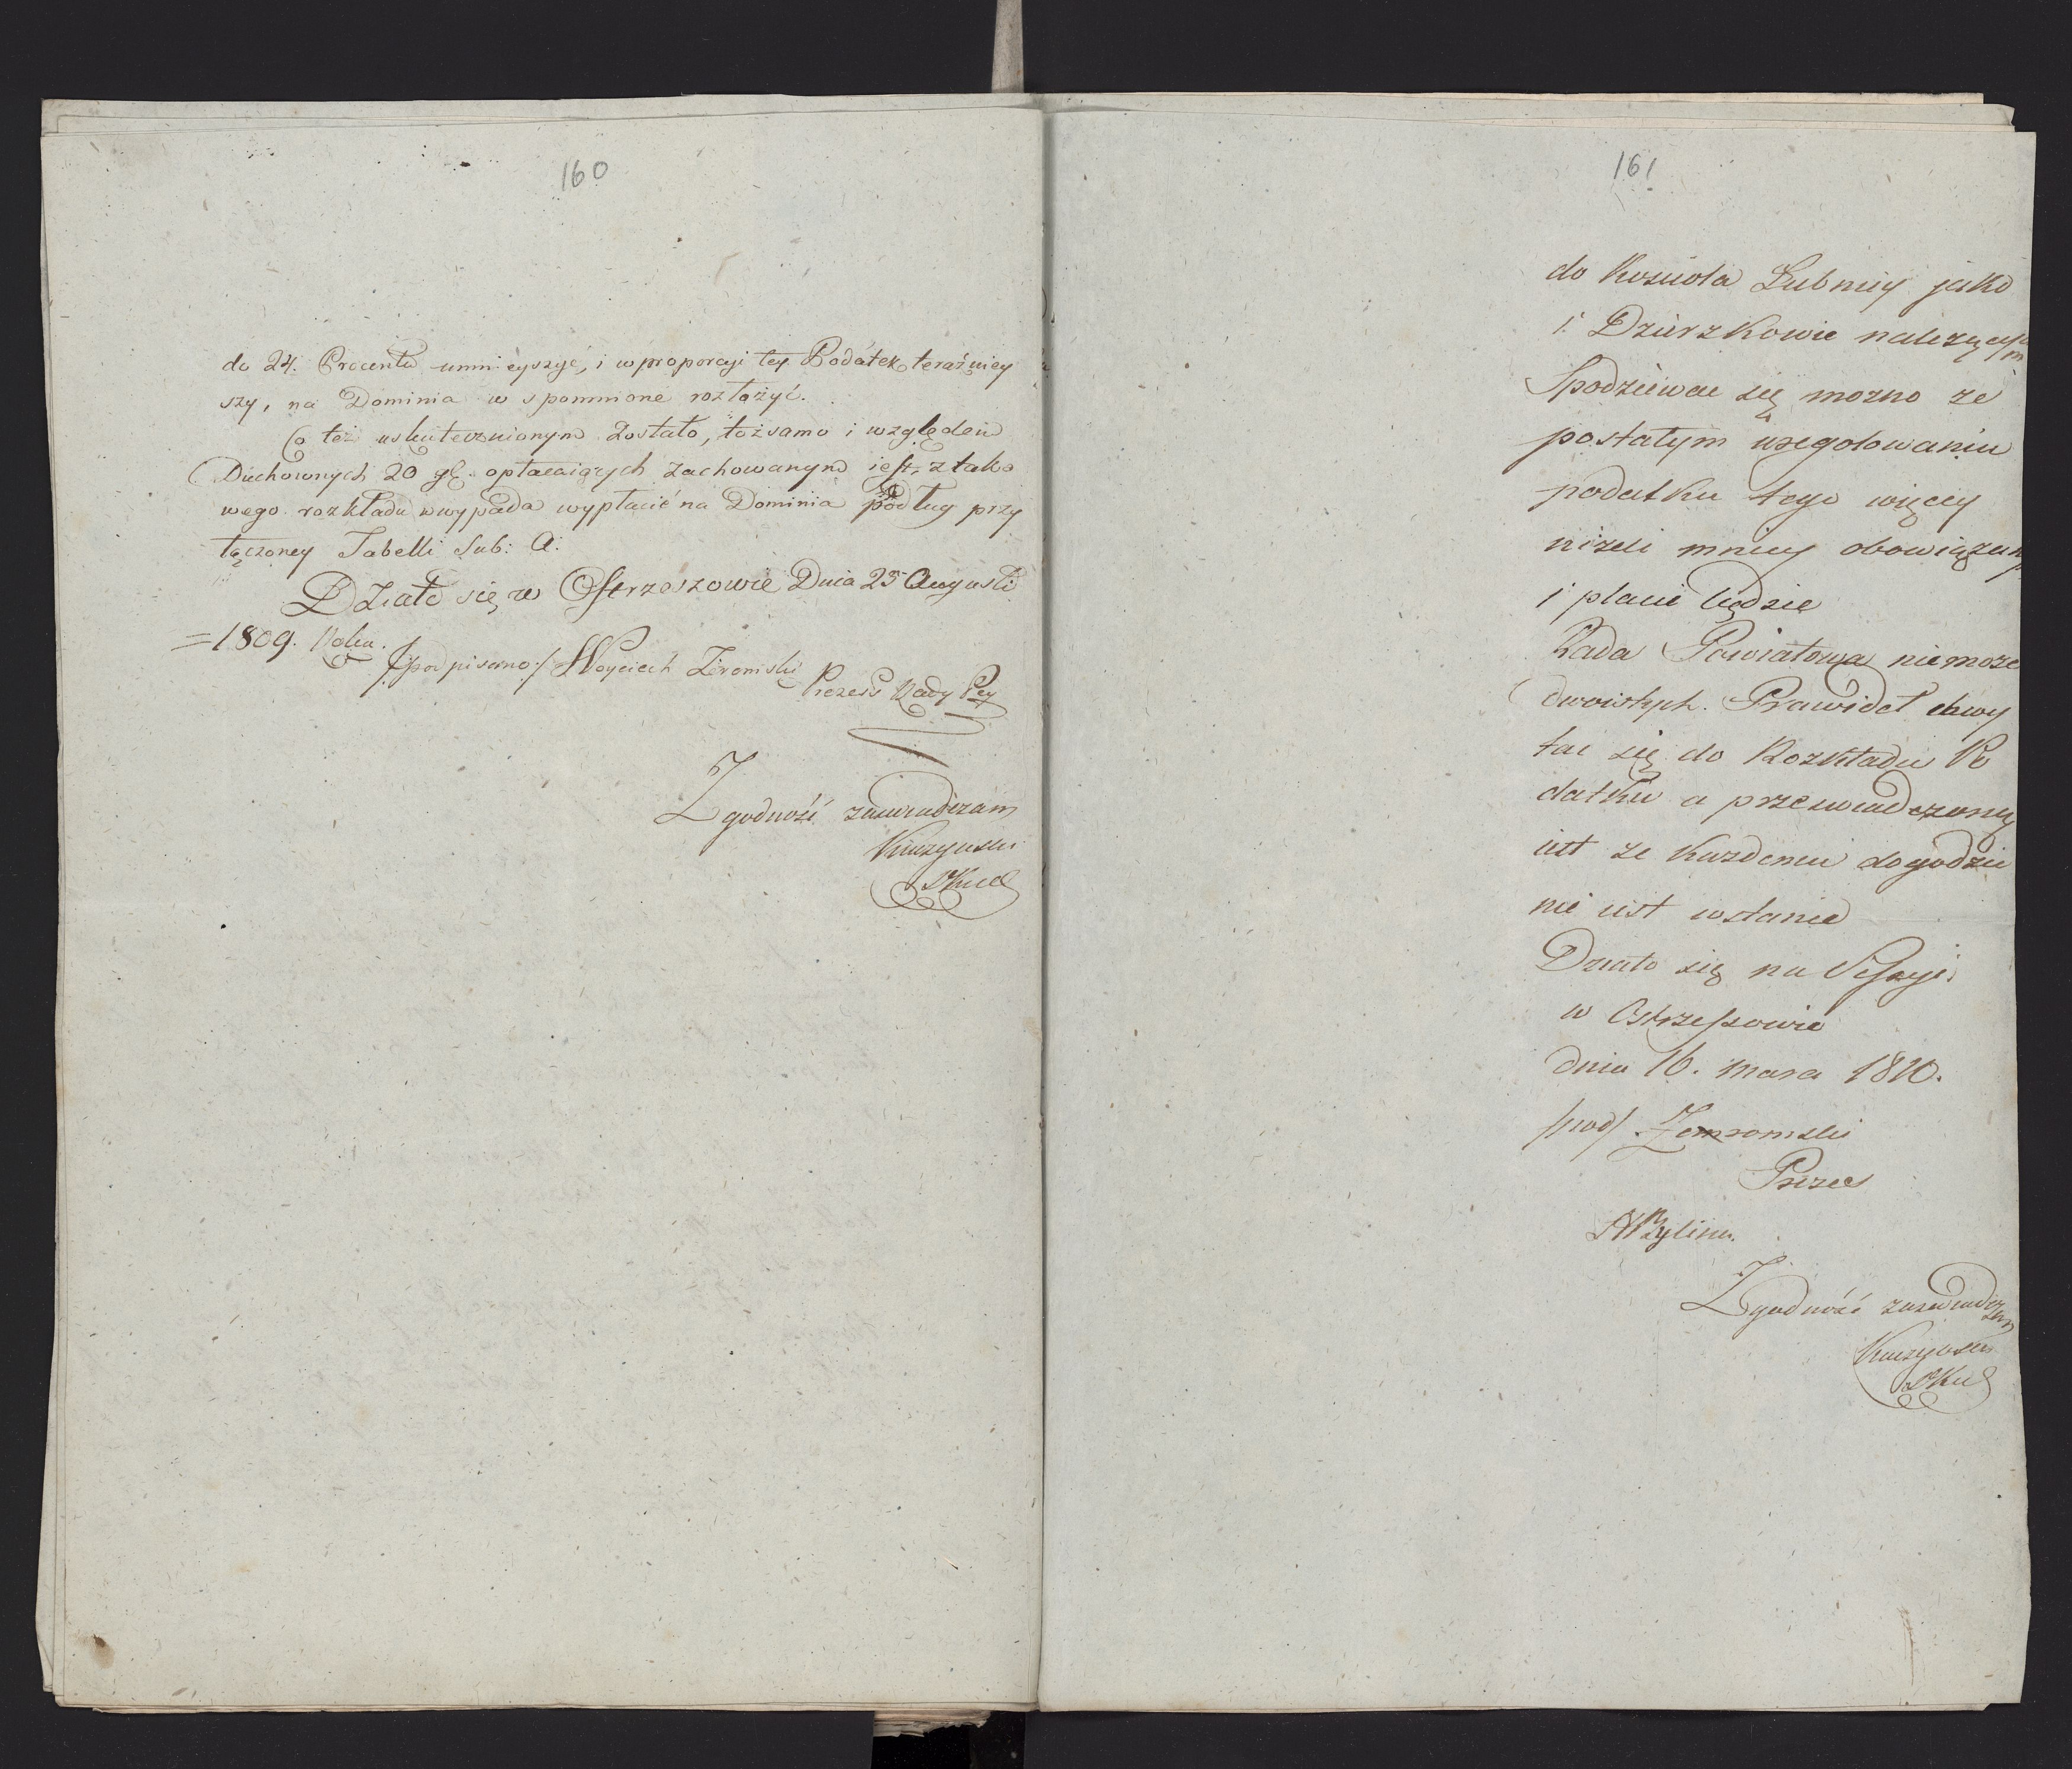 160
do 24. Procentu umnieyszyć, i w proporcyi tey Podatek teraźniey
szy, na Dominia wspomnione rozłożyć.
Co też uskutecznionym zostało, tożsamo i względem
Duchownych 20 gl. opłacaiących zachowanym iest, z tako
wego rozkładu wypada wypłacić na Dominia podług przy
łączoney Tabelli Sub: A:
Działo się w Ostrzeszowie Dnia 25 Augusti
=1809. Roku.
/:podpisano:/ Woyciech Żeromski
Prezes Rady Pey
Zgodność zaswiadczam
161
do Kościoła Lubnicy jako
i Dzierzkowie należący
Spodziewac się mozno ze
postałym uregolowaniu
podatku tego więcey
nizeli mniey obowiązany
i placic będzie
Rada Powiatowa niemoze
dwoistych. Prawideł chwy
tac się do Rozkładu Po
datku a przeswiadczony
iest ze kazdemu dogodzic
nie iest wstanie
Działo się na Sessyi
w Ostrzeszowie
dnia 16. marca 1810.
/pod/ Zemromski
Prezes
Bylina.
Zgodność zaswiadczam